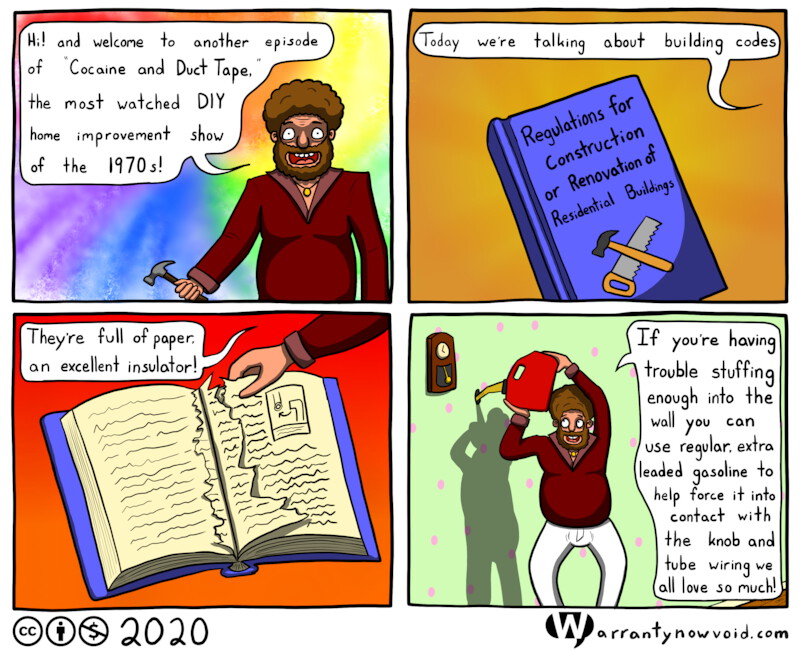 Hi! and welcome to another episode
of "Cocaine and Duct Tape,"
the most watched DIY
home improvement show
of the 1970s!
Today we're talking about building codes
Regulations for
Construction
or Renovation of
Residential Buildings
They're full of paper,
an excellent insulator!
If you're having
trouble stuffing
enough into the
wall you can
use regular, extra
leaded gasoline to
help force it into
contact with
the knob and
tube wiring we
all love so much!
cc 2020
Warrantynowvoid.com